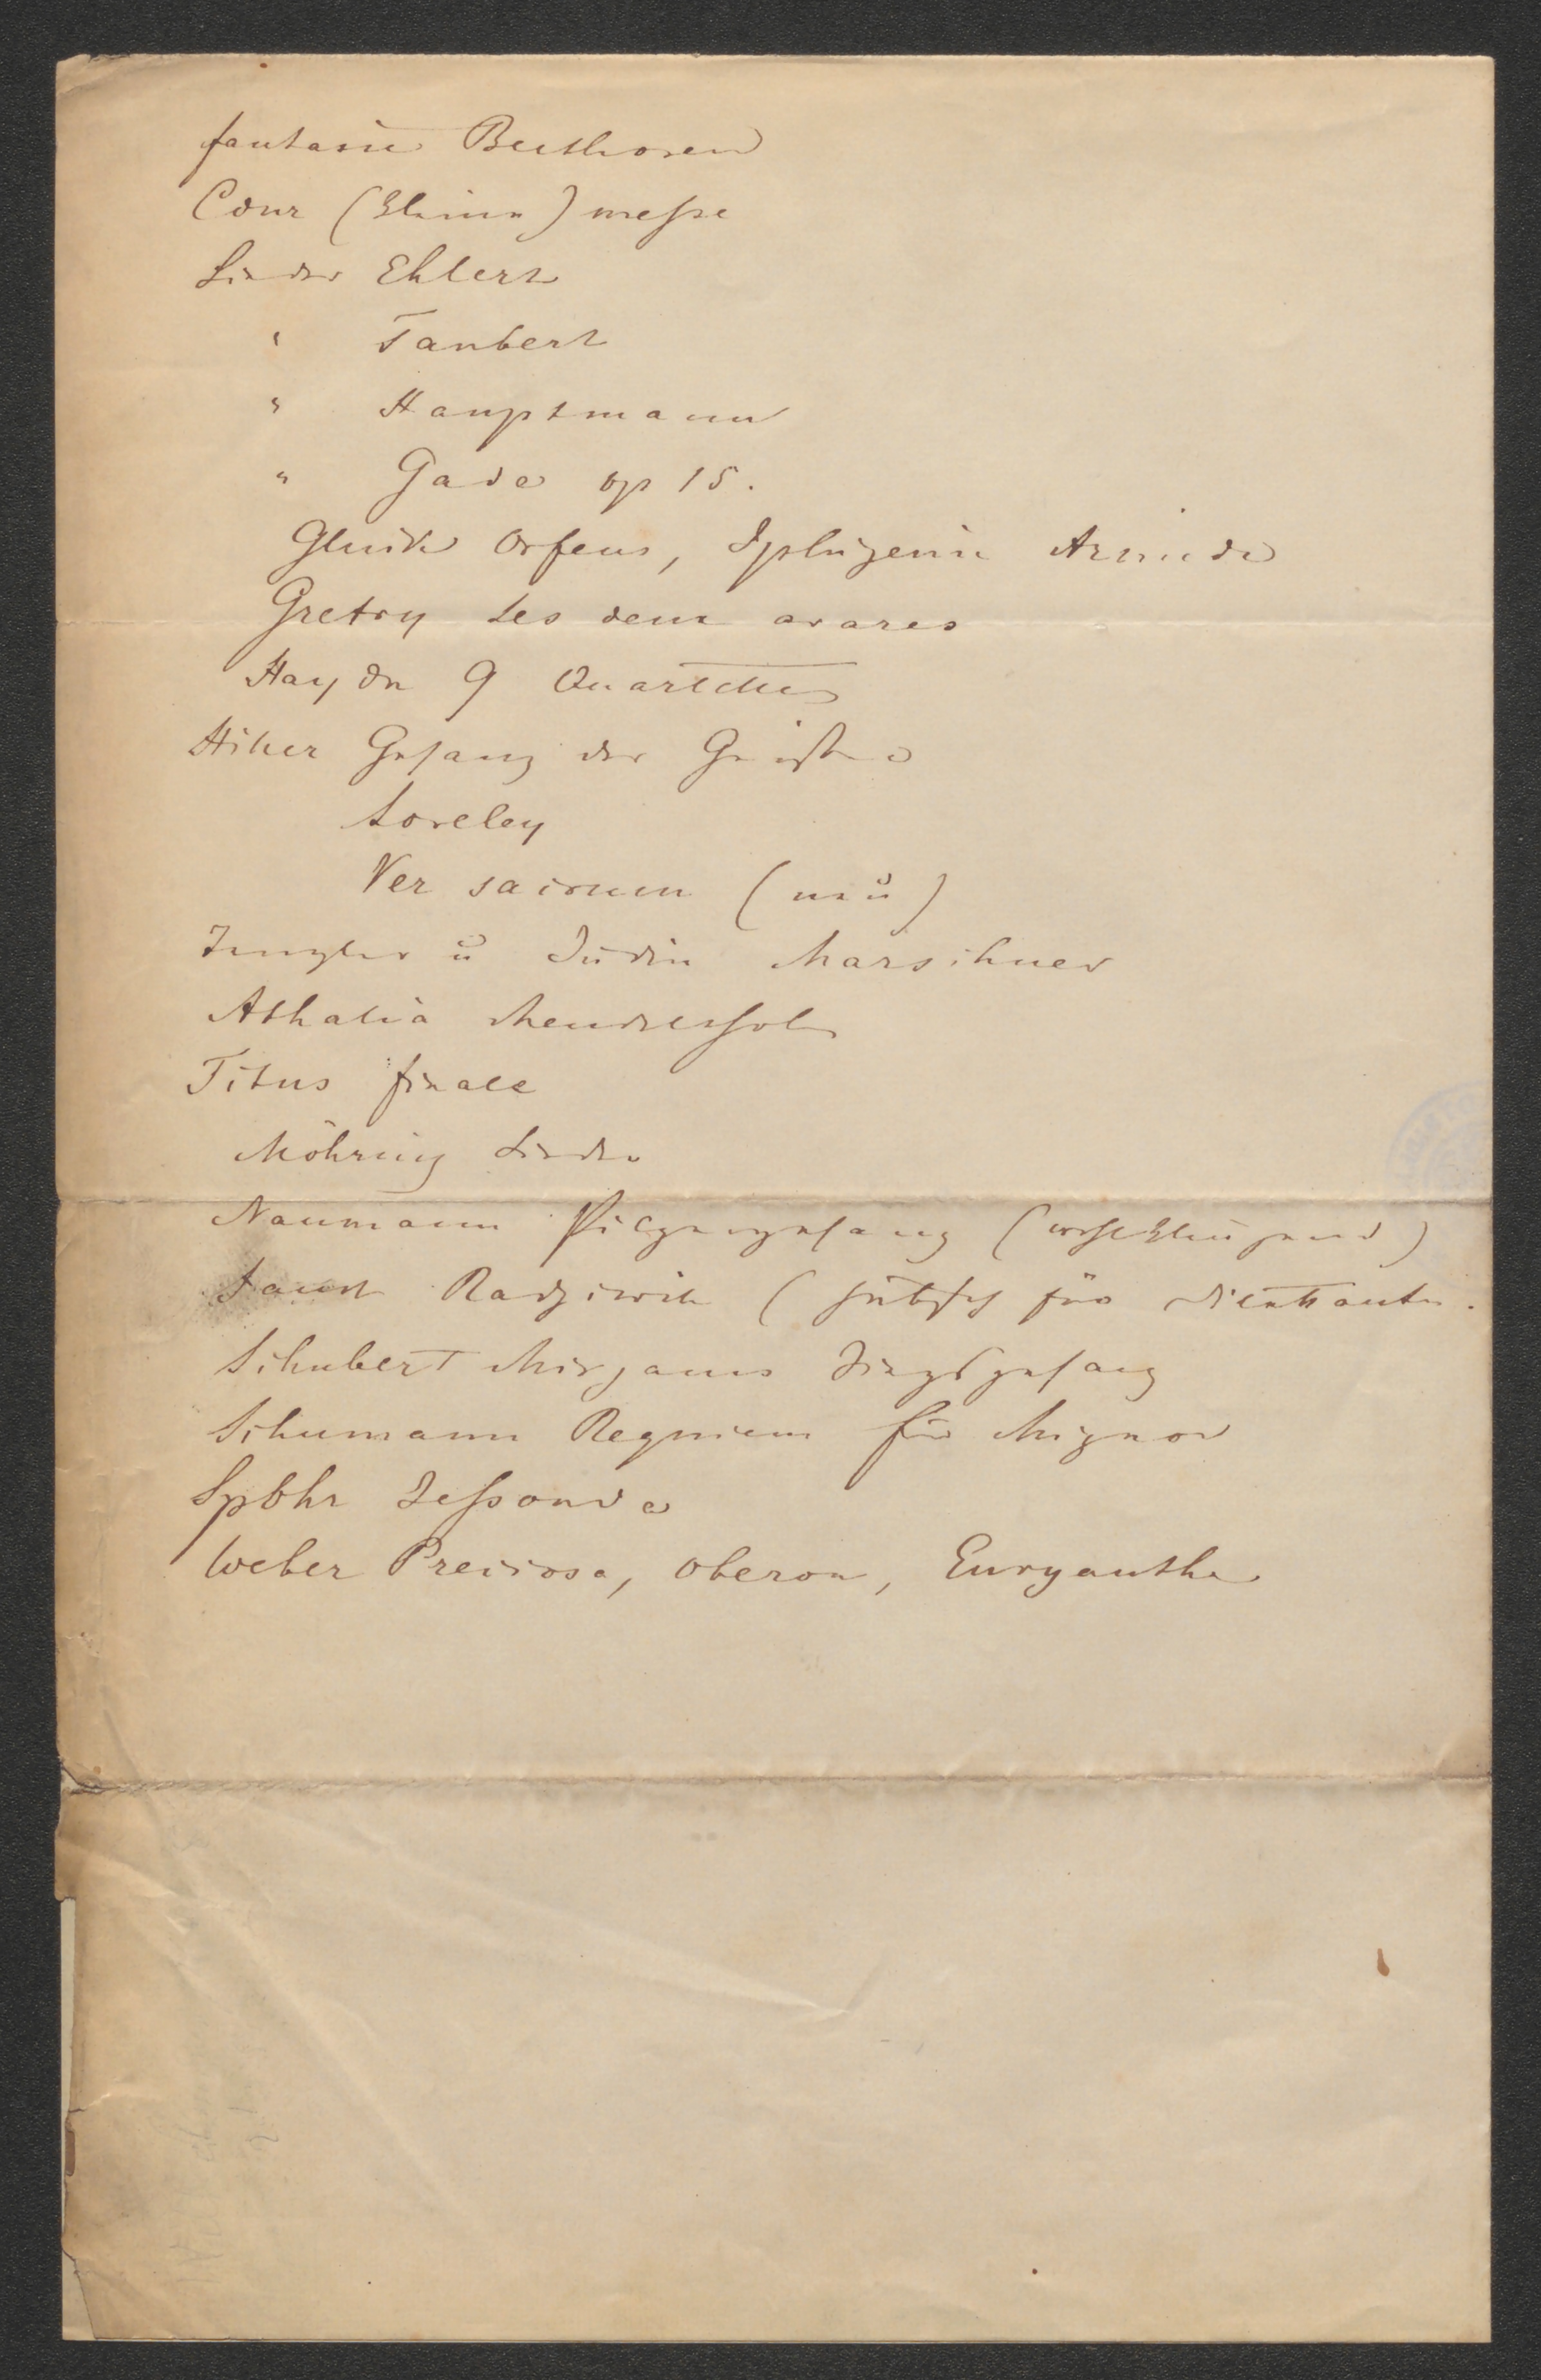 fantasie Beethoven
Cdur (kleine) messe
Lieder Ehlert
" Taubert
" Hauptmann
" Gade op 15.
Gluck Orfeus, Iphigenie Armide
Gretry Les deux avares
Haydn 9 Quartette
Hiller Gesang der Geister
Loreley
Ver sacrum (neu)
Templer u Jüdin Marschner
Athalia Mendelssohn
Titus finale
Möhring Lieder
Naumann Pilgergesang (wohlklingend)
Faust Radziwill (hübsch für Dilettanten.
Schubert Mirjams Siegsgesang
Schumann Requiem für Mignon
Spohr Jessonda
Weber Preciosa, Oberon, Euryanthe